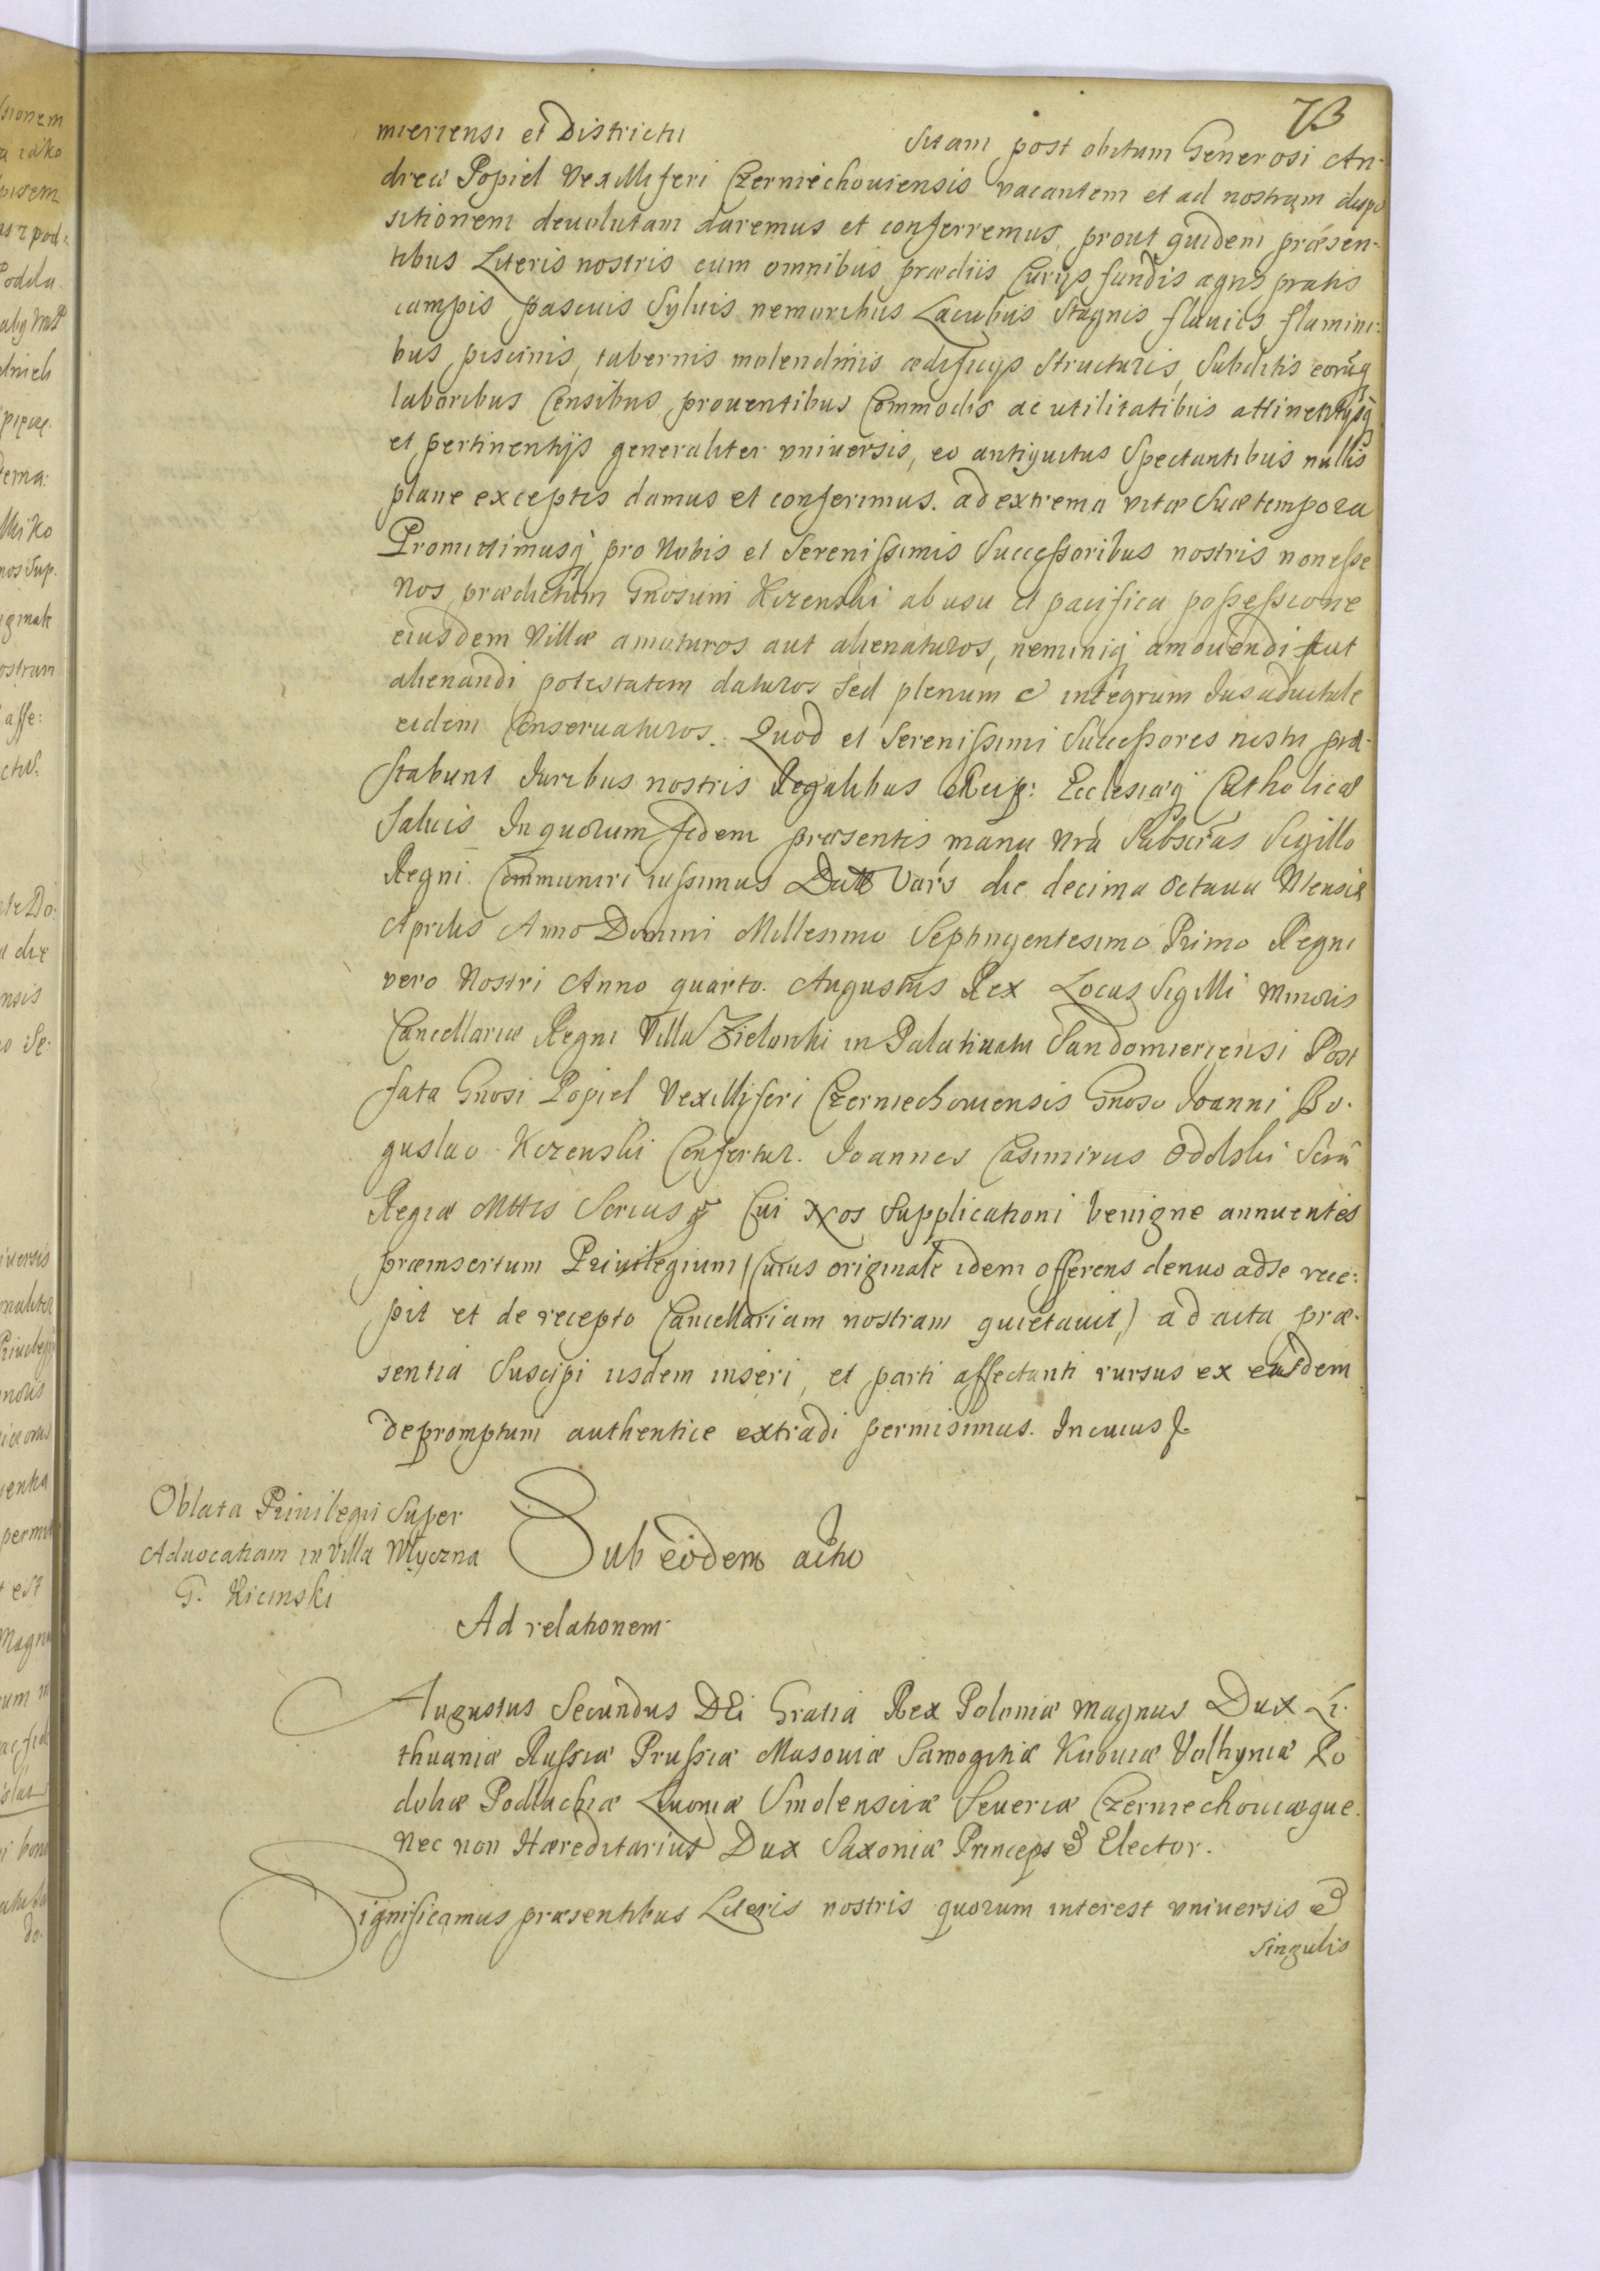 73
mieriensi et Districtu sitam post obitum Generosi An-
dreæ Popiel Vexilliferi Czerniechouiensis vacantem et ad nostram dispo
sitionem deuolutam daremus et conferremus, prout quidem præsen-
tibus Literis nostris cum omnibus prædiis Curijs fundis agris pratis
campis pascuis Syluis nemoribus Lacubus Stagnis fluuiis flumini-
bus piscinis, tabernis molendinis ædificijs Structuris, Subditis eorúq
laboribus Censibus prouentibus Commodis ac utilitatibus attinentijsq
et pertinentijs generaliter vniuersis, eo antiquitus Spectantibus nullis
plane exceptis damus et conferimus. ad extrema vitæ Suæ tempora
Promittimusq pro Nobis et Serenissimis Successoribus nostris non esse
Nos prædictum Gnosum Kizenski ab usu et pacifica possessione
eiusdem Villæ amoturos aut alienaturos, neminiq amouendi aut
alienandi potestatem daturos sed plenum & integrum Jus aduitale
eidem Conseruaturos. Quod et Serenissimi Successores nostri præ-
stabunt Juribus nostris Regalibus Reip: Ecclesiæq Catholicæ
Saluis In quorum fidem præsentes manu nrã Subscrãs Sigillo
Regni Communiri iussimus Datt Vars die decima octaua Mensis
Aprilis Anno Domini Millesimo Septingentesimo Primo Regni
vero Nostri Anno quarto. Augustus Rex Locus Sigilli Minoris
Cancellariæ Regni Villa Zielonki in Palatinatu Sandomieriensi Post
fata Gnosi Popiel Vexilliferi Czerniechouiensis Gnoso Joanni Bo-
guslao Kizenski Confertur. Joannes Casimirus Odolski
Regiæ Mttis Cui Nos Supplicationi benigne annuentes
præinsertum Priuilegium (Cuius originale idem offerens denuo ad se rece:
pit et de recepto Cancellariam nostram quietauit,) ad acta præ-
sentia Suscipi iisdem inseri, et parti affectanti rursus ex eisdem
depromptum authentice extradi permisimus. In cuius
Oblata Priuilegii Super
Aduocatiam in Villa Mtyczna
G. Kicinski
Sub eodem actu
Ad relationem
Augustus Secundus DEi Gratia Rex Poloniæ Magnus Dux Li-
thuaniæ Russiæ Prussiæ Masouiæ Samogitiæ Kiiouiæ Volhyniæ Po
doliæ Podlachiæ Liuoniæ Smolensciæ Seueriæ Czerniechouiæque
Nec non Hæreditarius Dux Saxoniæ Princeps & Elector.
Significamus præsentibus Literis nostris quorum interest vniuersis &
singulis